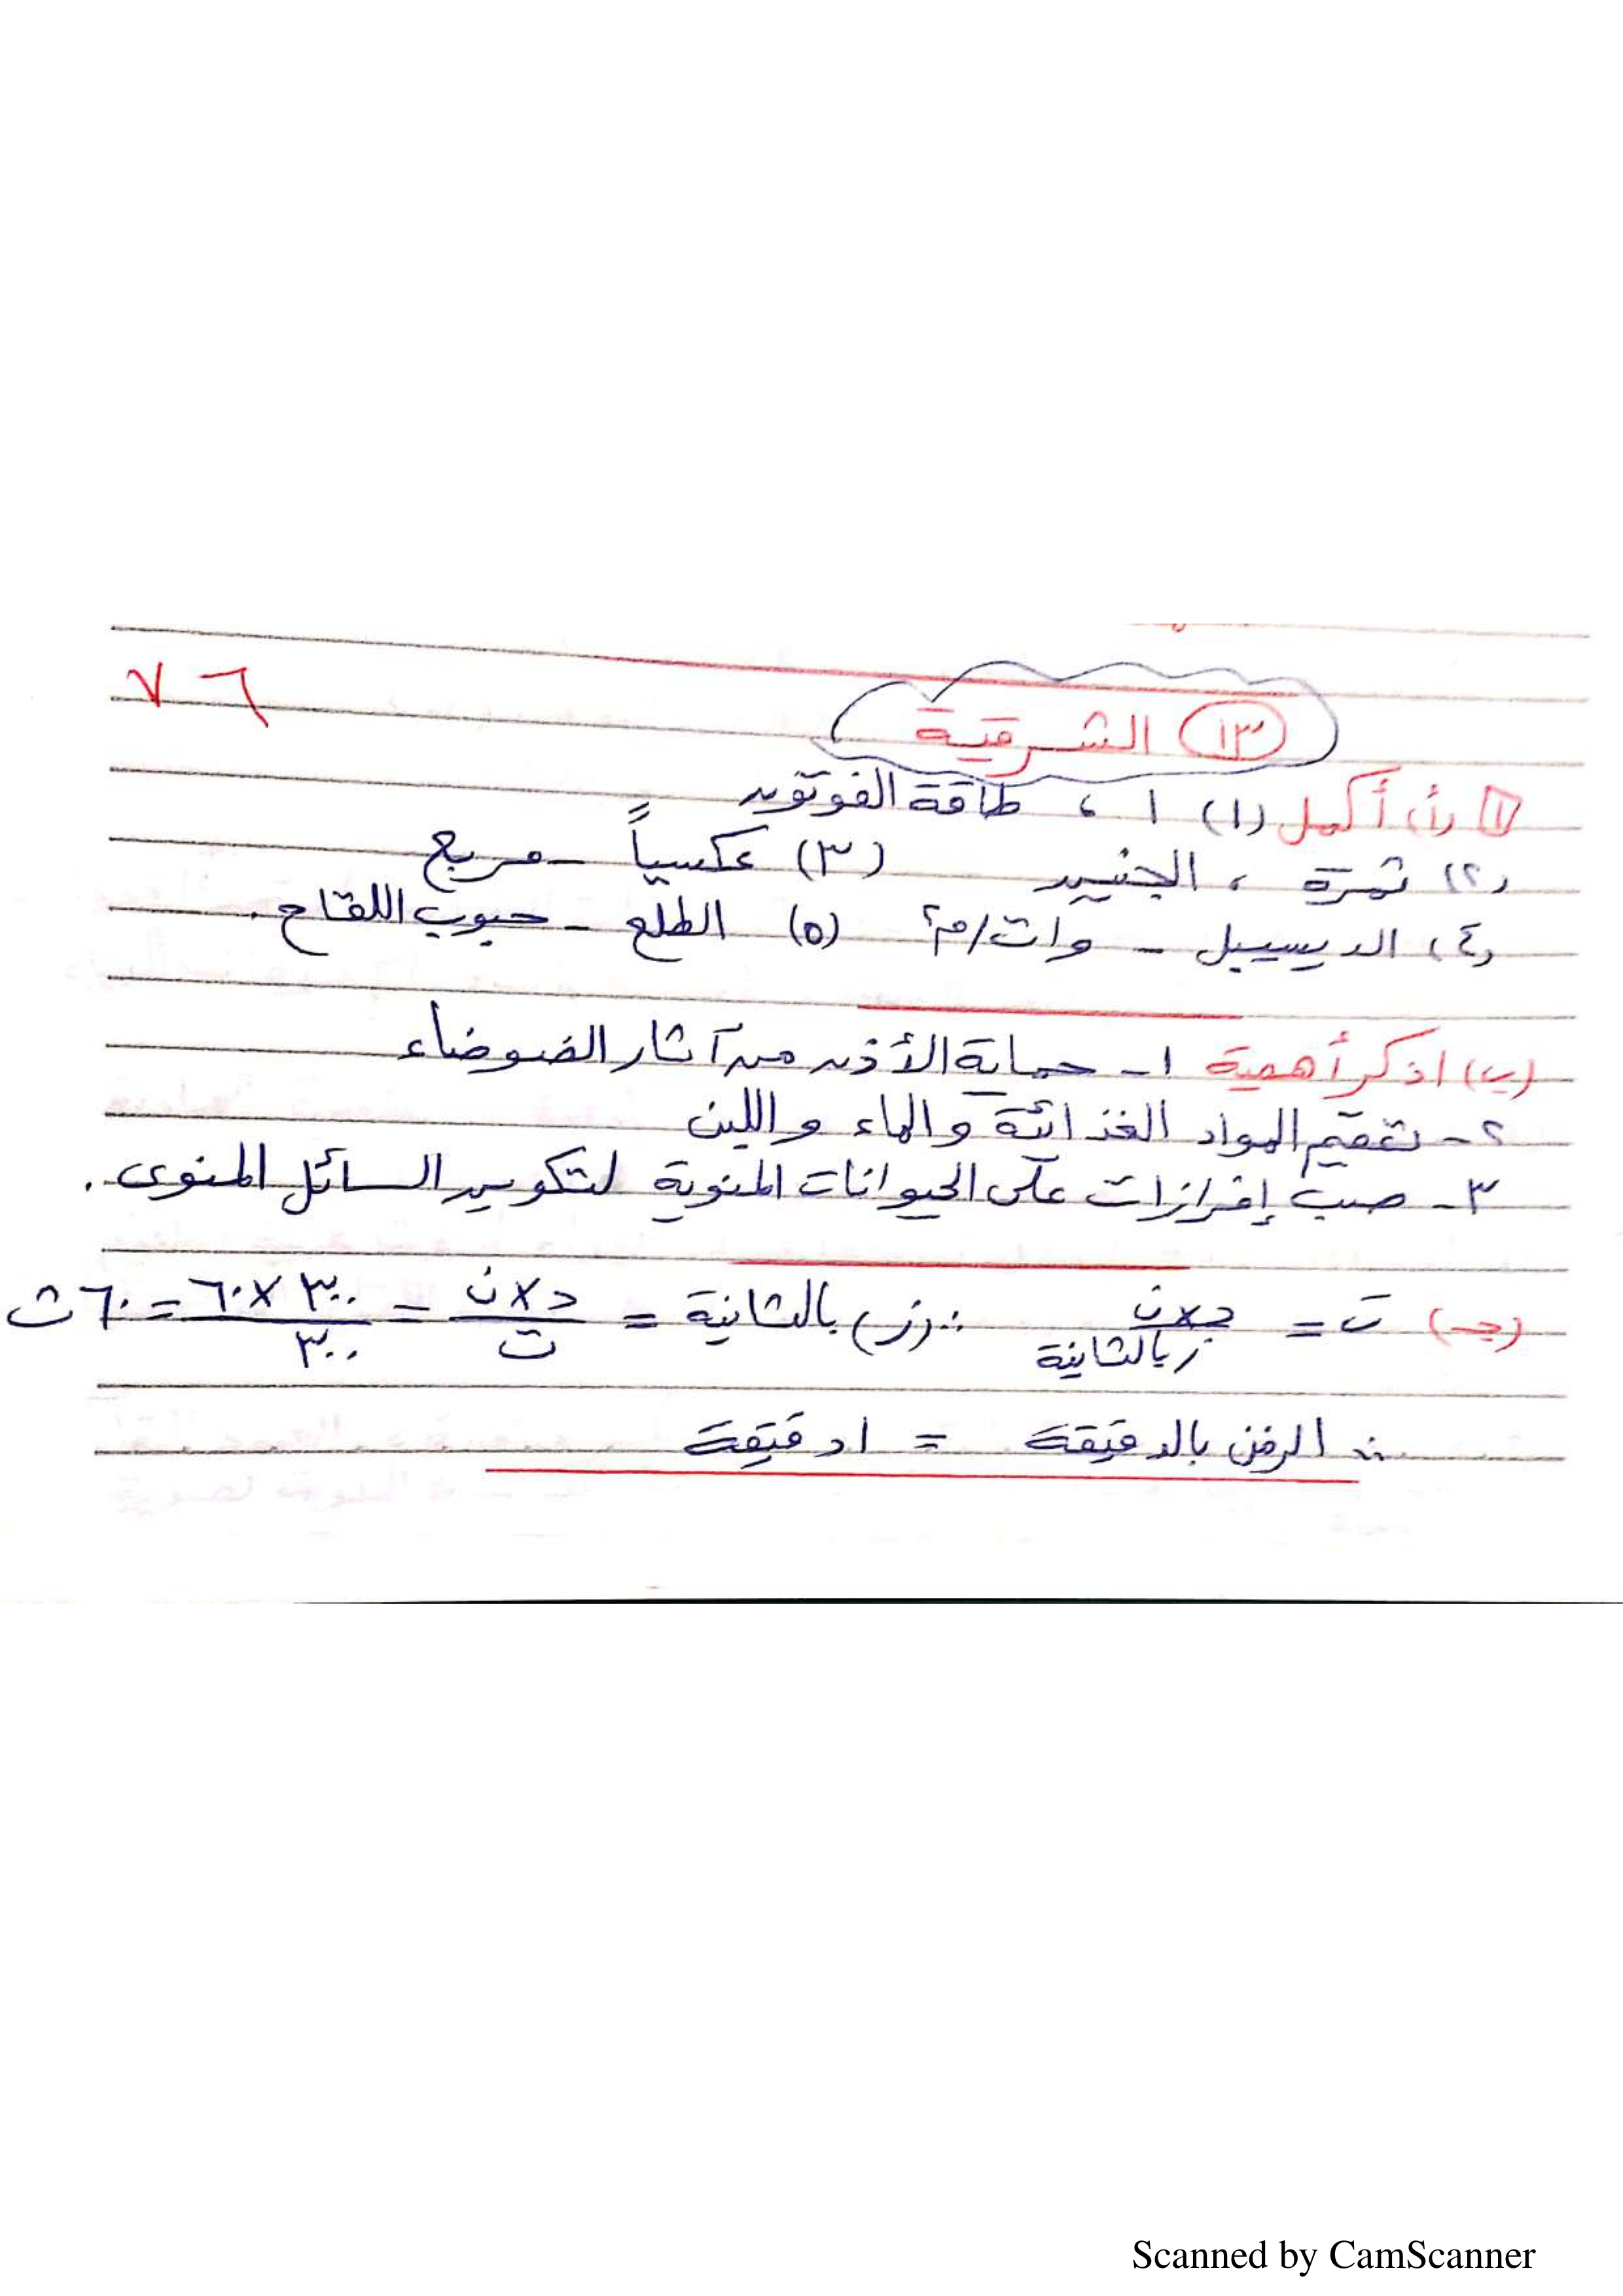 ٧٦
(١٣) الشرقية
[١] (أ) أكمل (١) ١ ، طاقة الفوتون
(٢) ثمرة ، الجنين (٣) عكسياً - مربع
(٤) الديسيبل - وات/م٢ (٥) الطلع - حبوب اللقاح .
(ب) اذكر أهمية ١- حماية الأذن من آثار الضوضاء
٢- تعقيم المواد الغذائية والماء واللبن
٣- صب إفرازات على الحيوانات المنوية لتكوين السائل المنوى .
(جـ) ت = د×ن / ز بالثانية ∴ (ز) بالثانية = د×ن / ت = ٣٠٠×٦٠ / ٣٠٠ = ٦٠ ث
∴ الزمن بالدقيقة = ١ دقيقة
Scanned by CamScanner